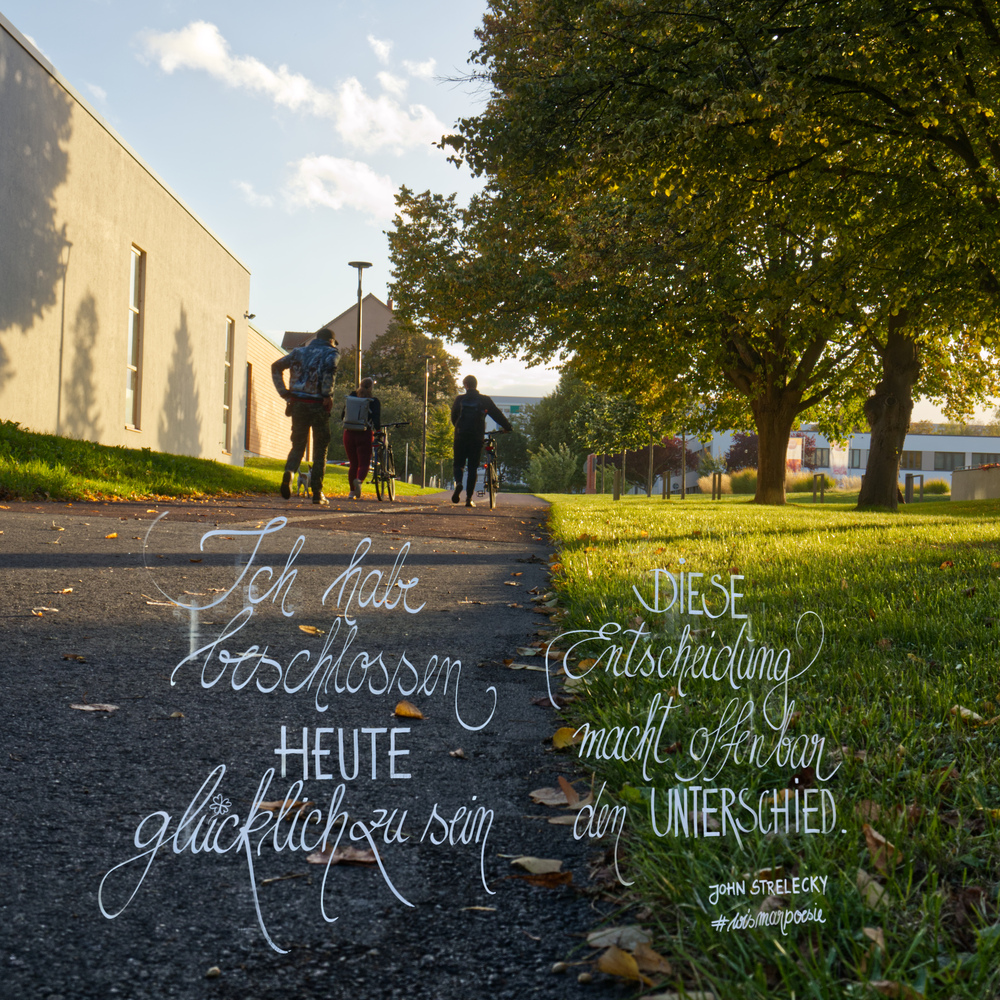 Ich habe
beschlossen
HEUTE
glücklich zu sein
DIESE
Entscheidung
macht offenbar
den UNTERSCHIED.
JOHN STRELECKY
#wismarpoesie